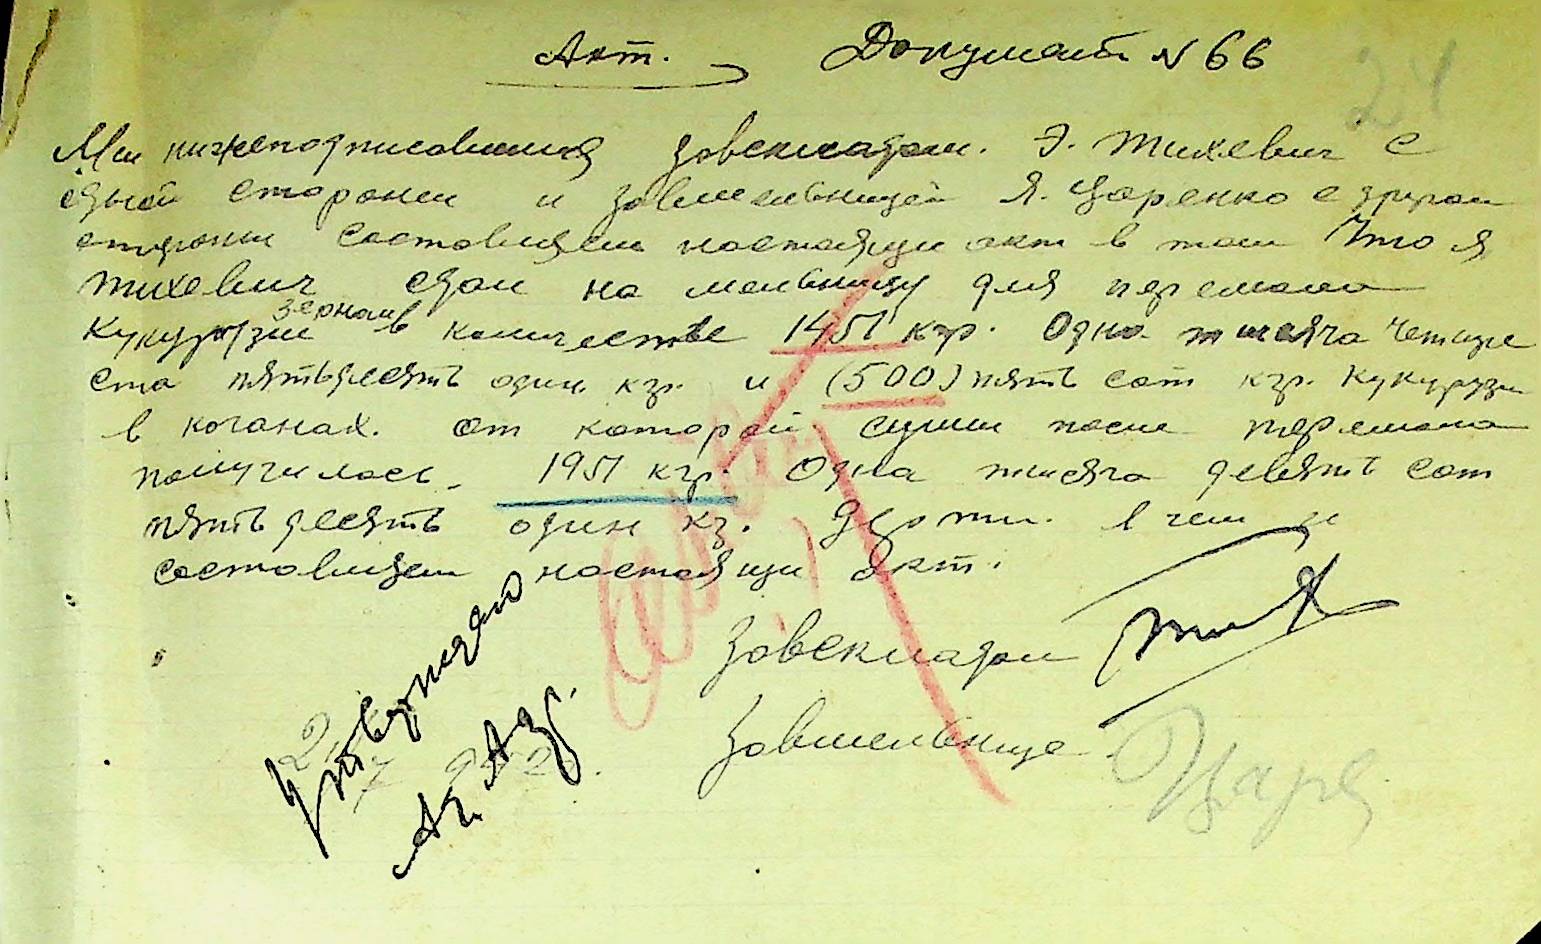 Акт. Документ № 66
24
Мы нижеподписавшися завскладом. Э. Тихевич с
одной стороны и завмельницей Я. Царенко с другой
стороны составляем настоящи акт в том что я
Тихевич сдал на мельницу для перемола
зерном
кукурузы в количестве 1451 кгр. Одна тысяча четыре
ста пятьдесять один кгр. и (500) пять сот кгр. кукурузы
в кочанах. от которой сумы после перемола
получилось 1951 кгр. Одна тысяча девять сот
пятьдесять один кг. дерти. в чем и
составляем настоящи акт.
Завскладом
Завмельнице
Царе
Утверждаю